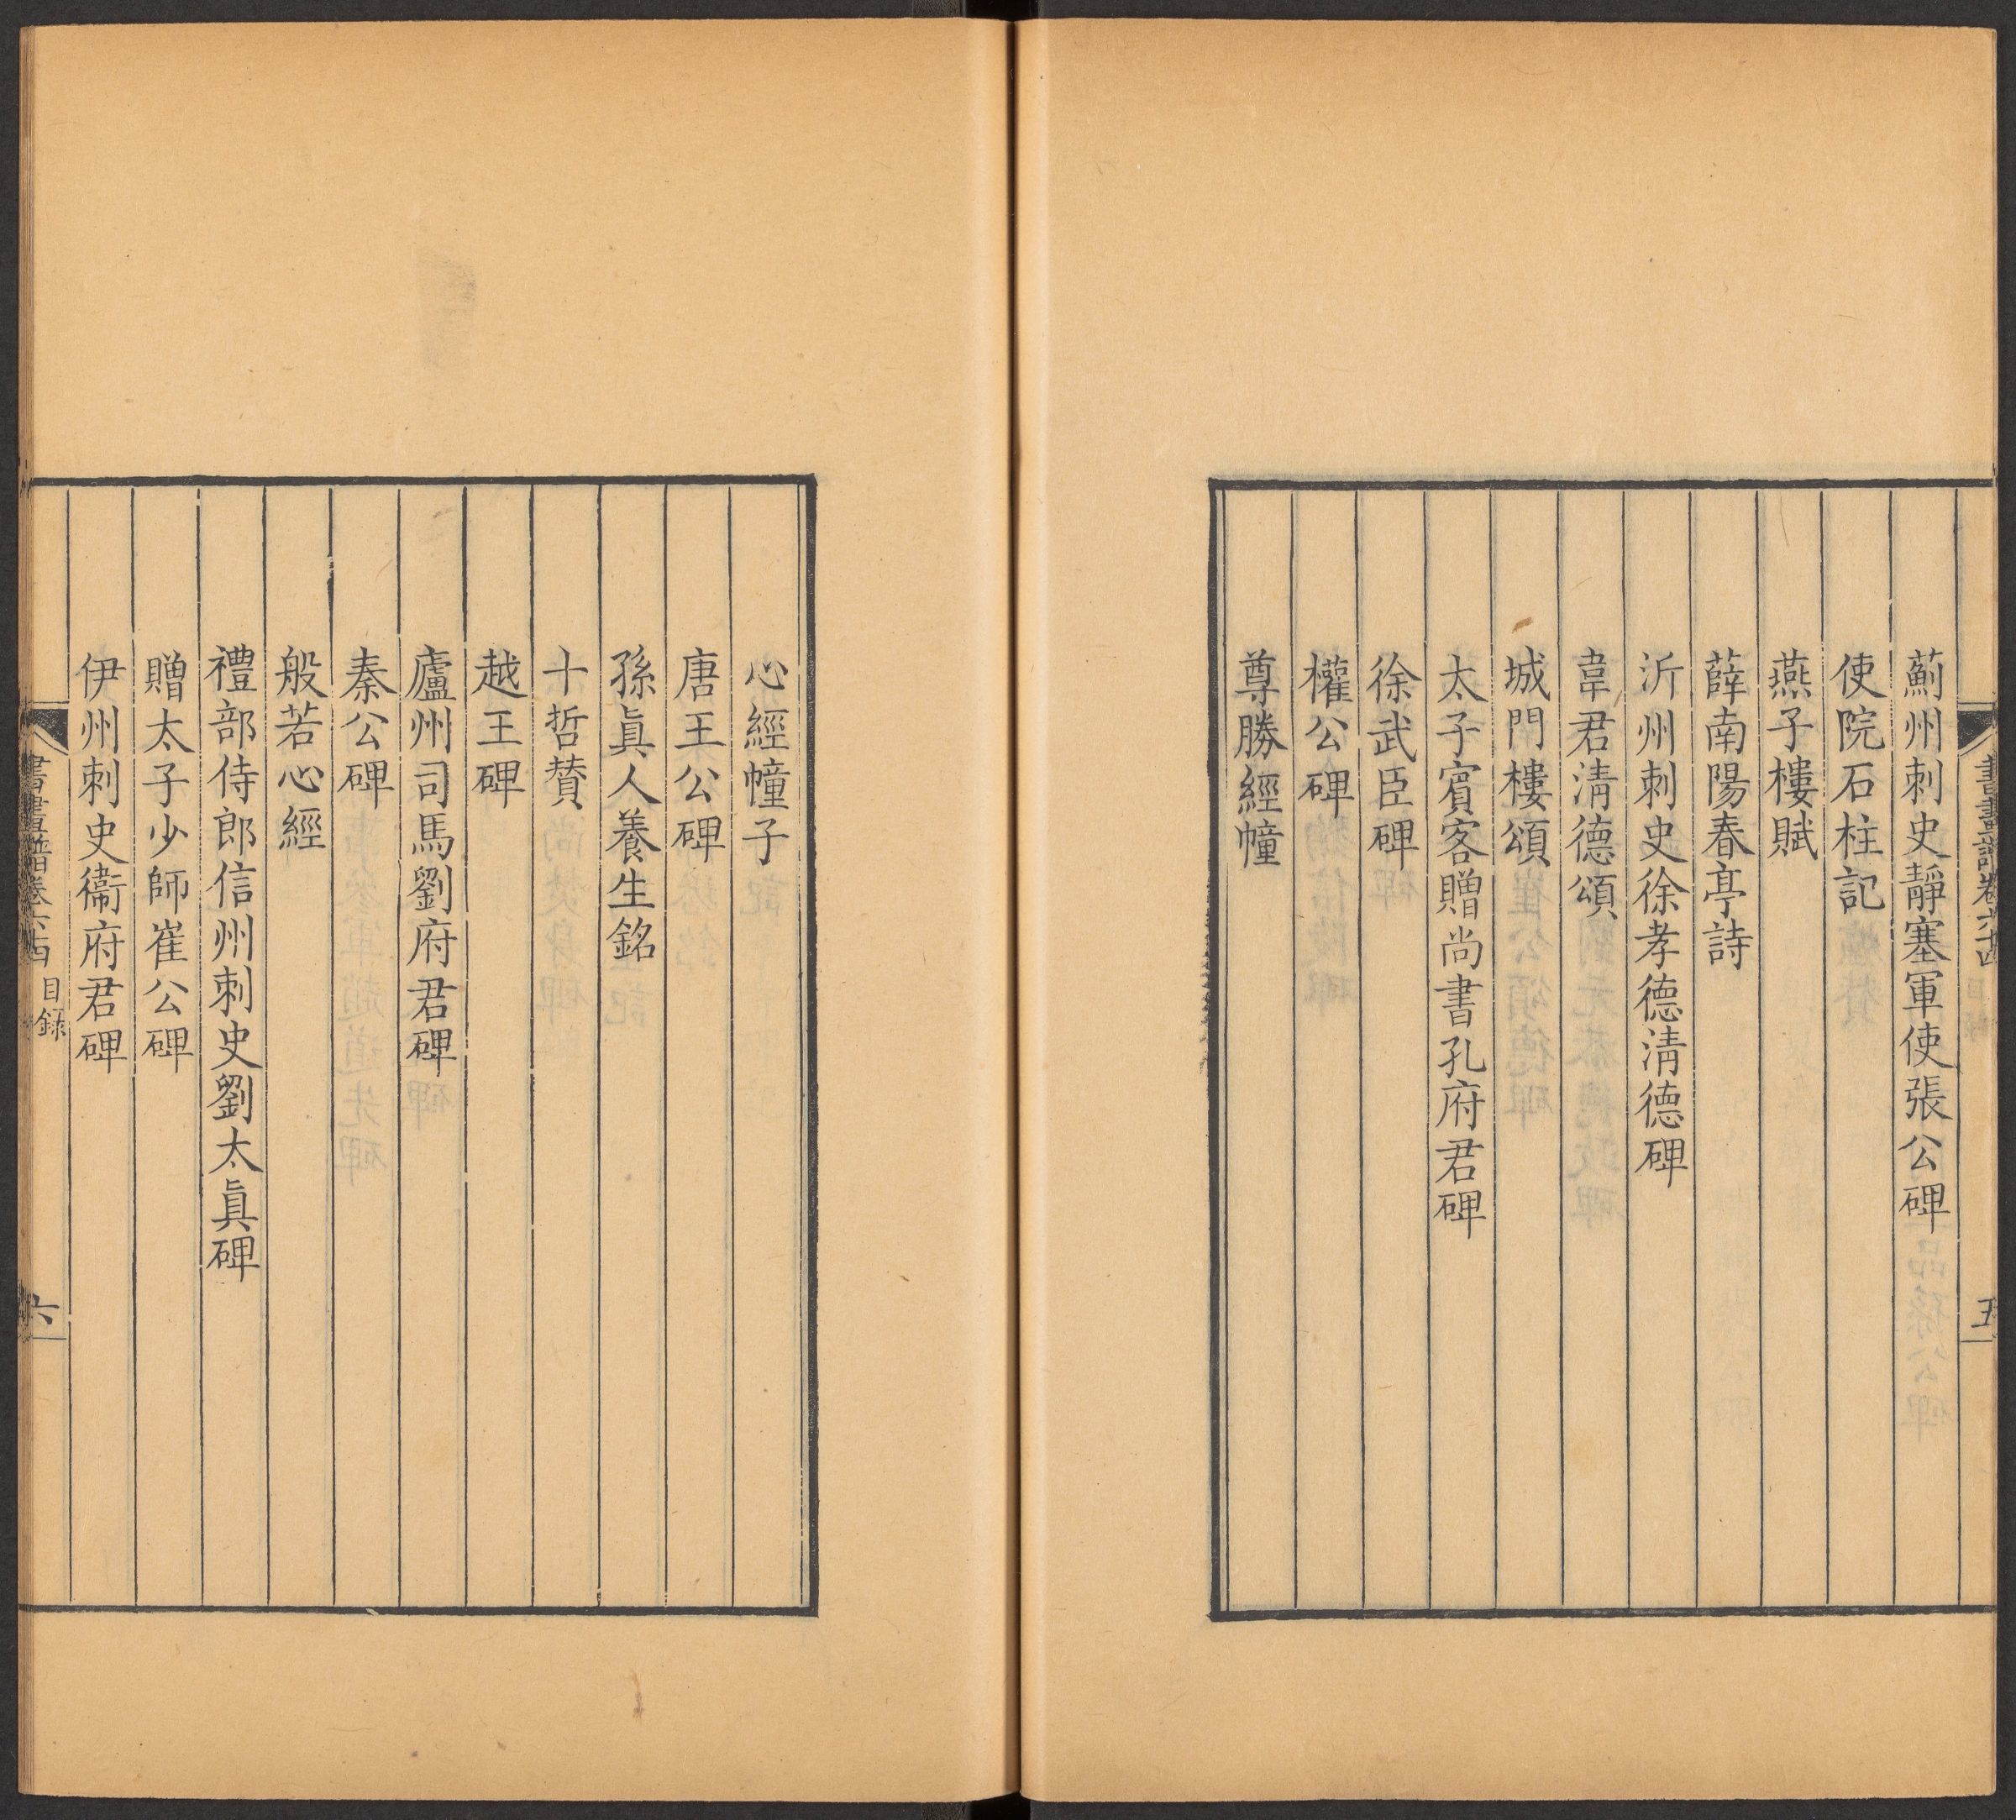 薊州刺史靜塞軍使張公碑
使院石柱記
燕子樓賦
薛南陽春亭詩
沂州刺史徐孝德清德碑
韋君清德頌
城門樓頌
太子賓客贈尚書孔府君碑
徐武臣碑
權公碑
尊勝經幢
心經幢子
唐王公碑
孫眞人養生銘
十哲贊
越王碑
廬州司馬劉府君碑
秦公碑
般若心經
禮部侍郎信州刺史劉太眞碑
贈太子少師崔公碑
伊州刺史衞府君碑
書畫譜卷六十四 目錄
六